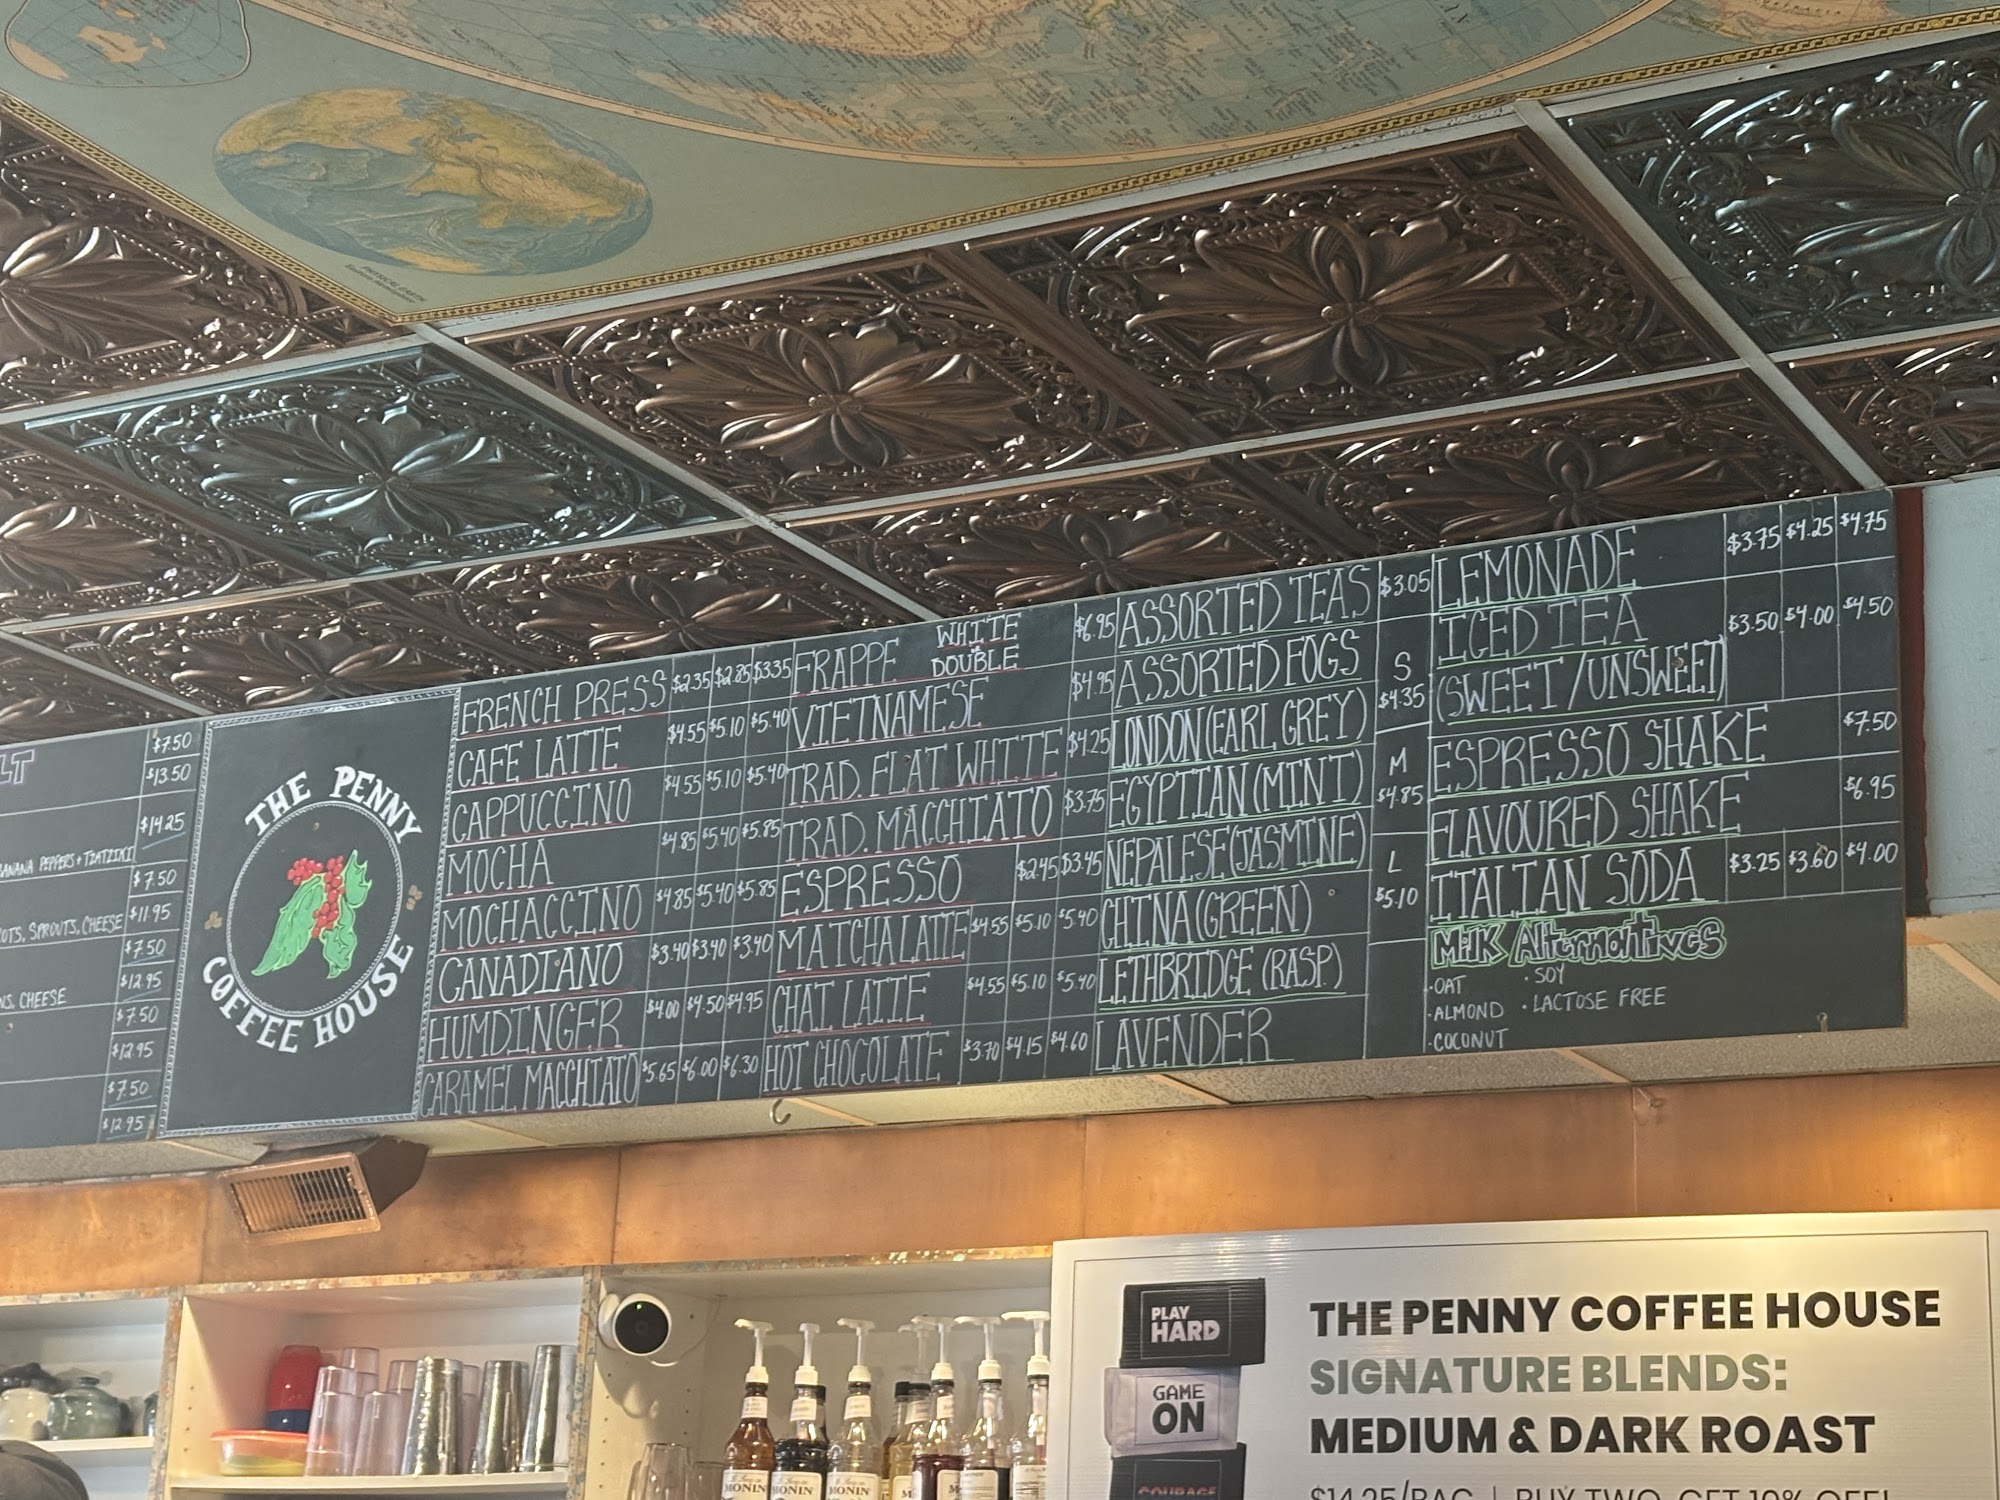 PHYSICAL EARTH
LT
$7.50
$13.50
$14.25
BANANA PEPPERS + TZATZIKI
$7.50
$11.95
SPROUTS, CHEESE
$7.50
$12.95
CHEESE
$7.50
$12.95
$7.50
$12.95
THE PENNY
COFFEE HOUSE
FRENCH PRESS $2.35 $2.85 $3.35
CAFE LATTE $4.55 $5.10 $5.40
CAPPUCCINO $4.55 $5.10 $5.40
MOCHA $4.85 $5.40 $5.85
MOCHACCINO $4.85 $5.40 $5.85
CANADIANO $3.40 $3.40 $3.40
HUMDINGER $4.00 $4.50 $4.95
CARAMEL MACCHIATO $5.65 $6.00 $6.30
FRAPPE WHITE DOUBLE $6.95
VIETNAMESE $4.95
TRAD. FLAT WHITE $4.25
TRAD. MACCHIATO $3.75
ESPRESSO $2.45 $3.45
MATCHA LATTE $4.55 $5.10 $5.40
CHAI LATTE $4.55 $5.10 $5.40
HOT CHOCOLATE $3.70 $4.15 $4.60
ASSORTED TEAS $3.05
ASSORTED FOGS
LONDON (EARL GREY)
EGYPTIAN (MINT)
NEPALESE (JASMINE)
CHINA (GREEN)
LETHBRIDGE (RASP.)
LAVENDER
S
$4.35
M
$4.85
L
$5.10
LEMONADE $3.75 $4.25 $4.75
ICED TEA $3.50 $4.00 $4.50
(SWEET/UNSWEET)
ESPRESSO SHAKE $7.50
FLAVOURED SHAKE $6.95
ITALIAN SODA $3.25 $3.60 $4.00
Milk Alternatives
·OAT ·SOY
·ALMOND ·LACTOSE FREE
·COCONUT
PLAY
HARD
GAME
ON
COURAGE
THE PENNY COFFEE HOUSE
SIGNATURE BLENDS:
MEDIUM & DARK ROAST
$14.25/BAG | BUY TWO, GET 10% OFF!
MONIN
MONIN
MONIN